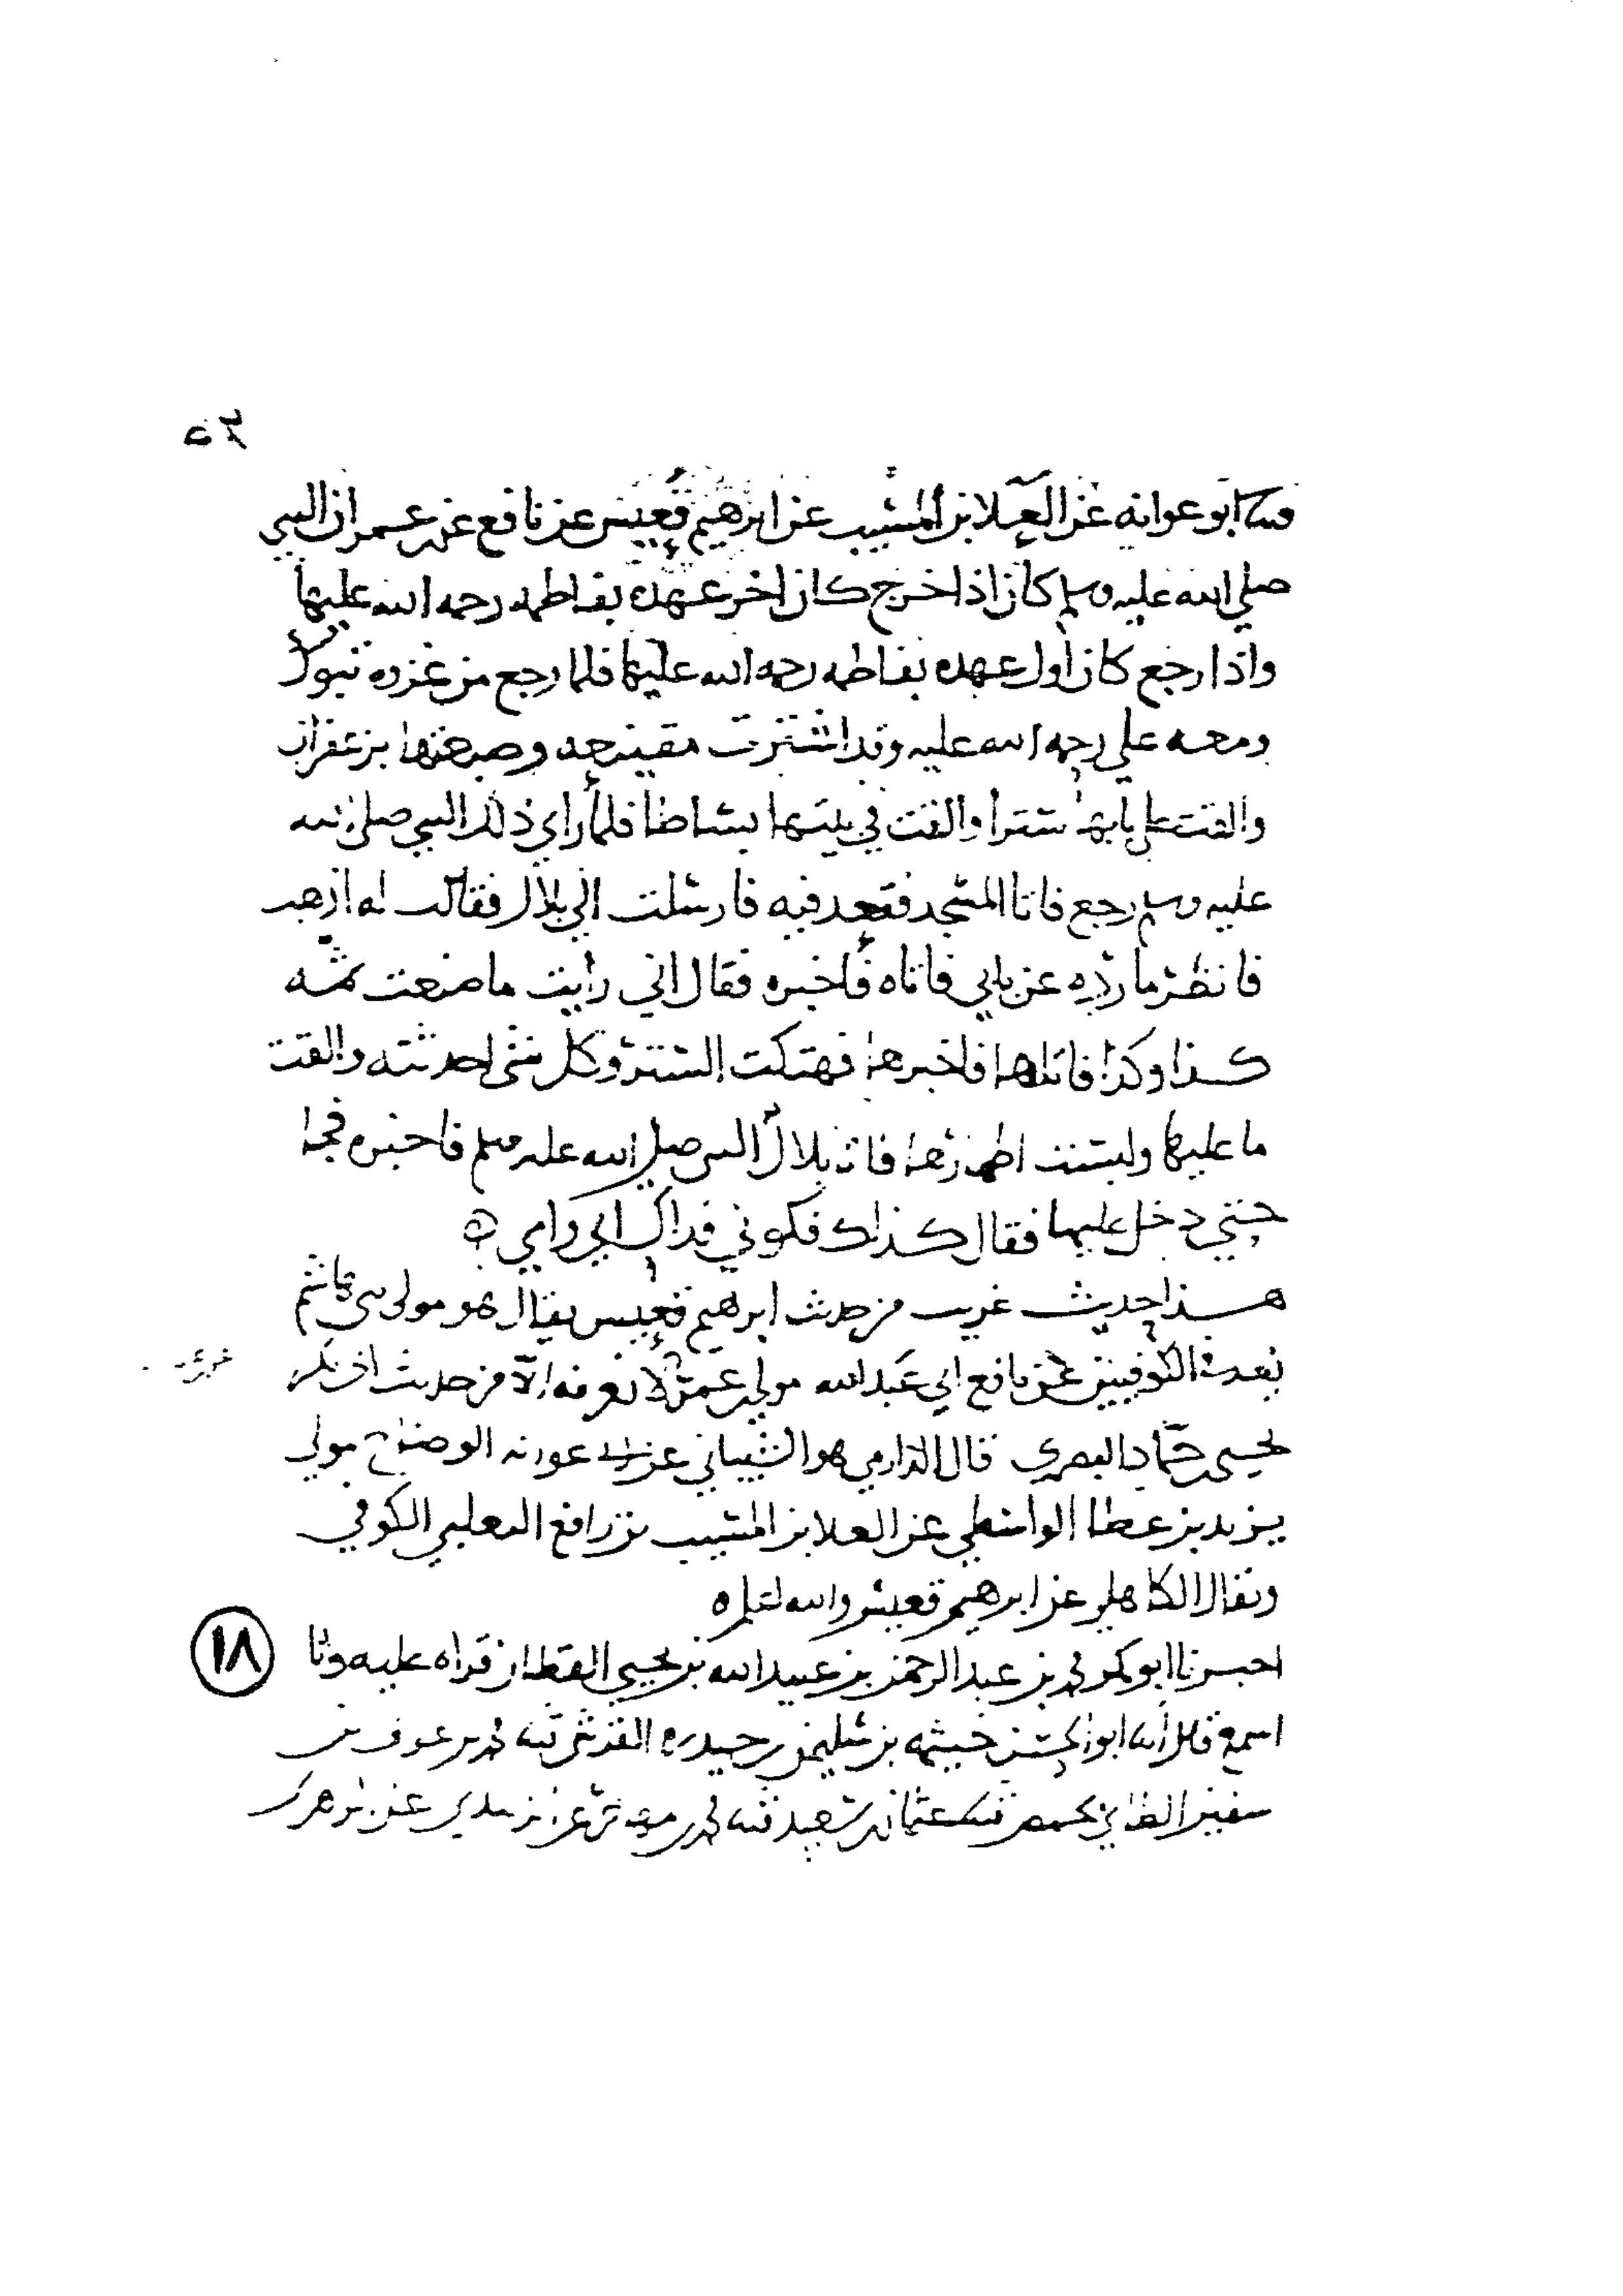 ٥٣
ثنا ابو عوانه عن العلا بن المسيب عن ابرهيم قعيس عن نافع عن بن عمر ان النبي
صلى الله عليه وسلم كان اذا خرج كان اخر عهده بفاطمه رحمه الله عليها
واذا رجع كان اول عهده بفاطمه رحمه الله عليها فلما رجع من غزوه تبوك
ومعه علي رحمه الله عليه وقد اشترت مقينعه وصبغتها بزعفران
والقت على بابها سترا والقت في بيتها بساطا فلما راي ذلك النبي صلى الله
عليه وسلم رجع فاتا المسجد فقعد فيه فارسلت الى بلال فقالت له اذهب
فانظر ما رده عن بابي فاتاه فاخبره فقال اني رايت ما صنعت ثمه
كذا وكذا فاتاها فاخبرها فهتكت الستر وكل شي احدثته والقت
ما عليها ولبست اطمارها فاتا بلال النبي صلى الله عليه وسلم فاخبره فجا
حتى دخل عليها فقال كذلك فكوني فداك ابي وامي
هذا حديث غريب من حديث ابرهيم قعيس يقال هو مولى بني هاشم
يعد في الكوفيين عن نافع ابي عبد الله مولى بن عمر لا نعرفه الا من حديث ابي بكر
يحيى بن حماد البصري قال الدارمي هو الشيباني عن ابي عوانه الوضاح مولى
يزيد بن عطا الواسطي عن العلا بن المسيب بن رافع الثعلبي الكوفي
ويقال الكاهلي عن ابرهيم قعيس والله اعلم
١٨
اخبرنا ابو بكر محمد بن عبد الرحمن بن عبيد الله بن يحيى القطان قراه عليه وانا
اسمع قال ابنا ابو الحسن خيثمه بن سليمن بن حيدره القرشي ثنا محمد بن عوف بن
سفين الطائي بحمص ثنا عثمان بن سعيد ثنا محمد بن مهاجر عن